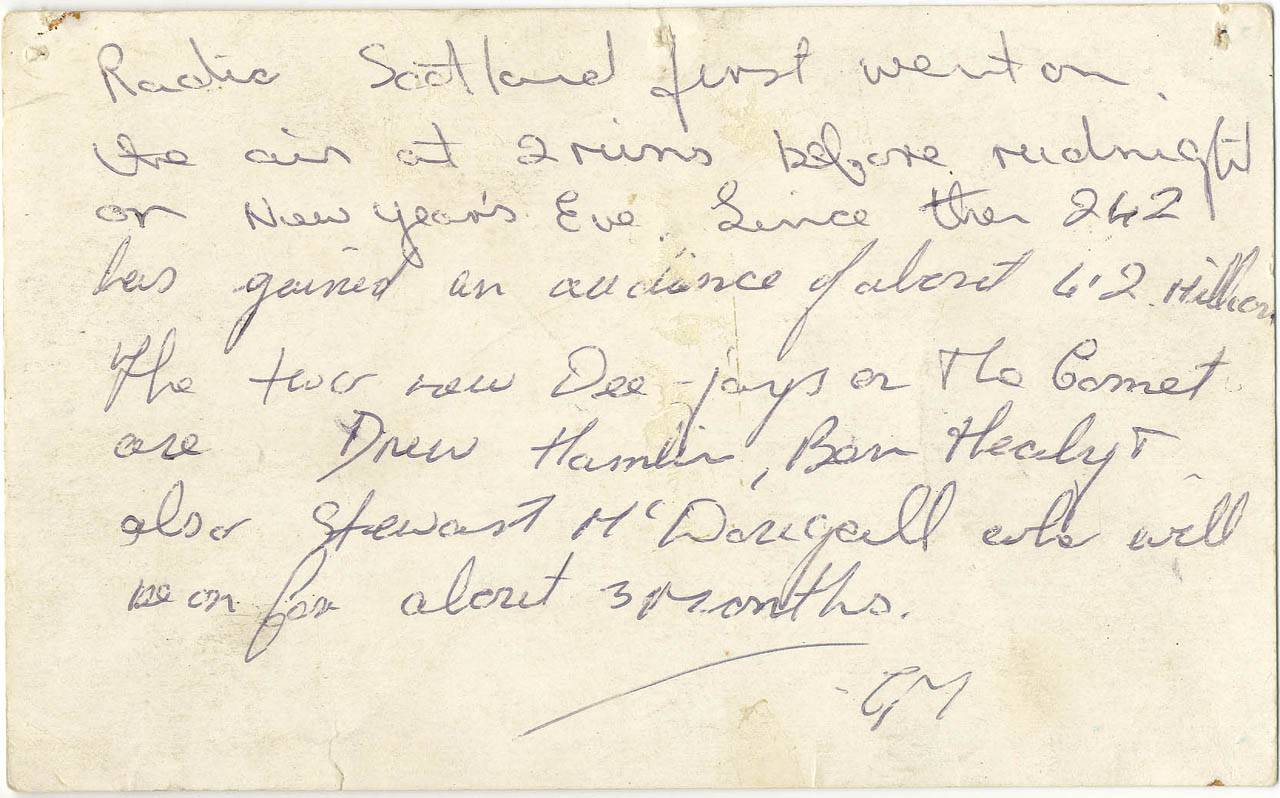 Radio Scotland first went on
the air at 2 mins before midnight
on New Year's Eve. Since then 242
has gained an audience of about 4.2 Million
The two new Dee-jays on The Comet
are Drew Hamlin, Ben Healy +
also Stewart McDougall who will
be on for about 3 Months.
GM